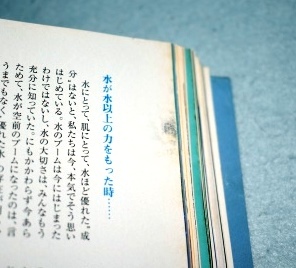 水が水以上の力をもった時……
水にとって、肌にとって、水ほど優れた〝成
分〟はないと、私たちは今、本気でそう思い
はじめている。水のブームは今にはじまった
わけではないし、水の大切さは、みんなもう
充分に知っていた。にもかかわらず今あら
ためて、水が空前のブームになったのは、言
うまでもなく〝優れた水〟の